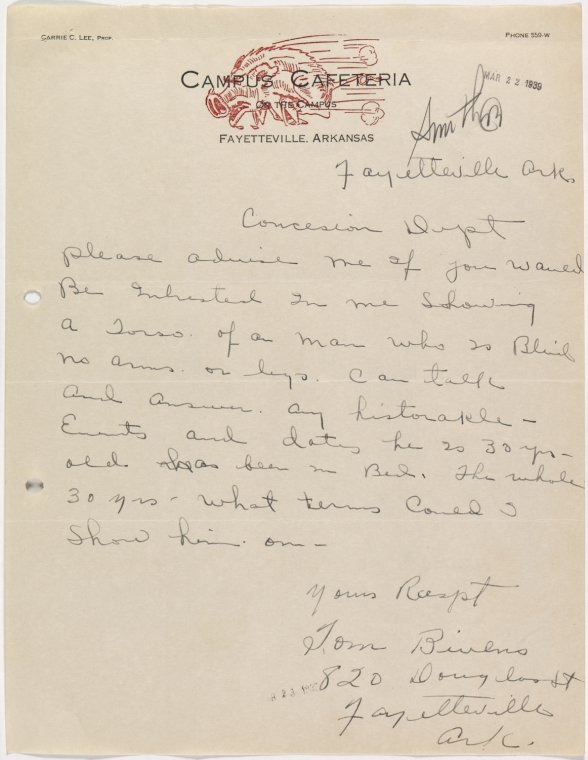 CARRIE C. LEE, PROP.
PHONE 559-W
CAMPUS CAFETERIA
ON THE CAMPUS
FAYETTEVILLE, ARKANSAS
MAR 22 1939
Smith
Fayetteville Ark
Concesion Dept
please advise me if you waued
Be Intrested In me Showing
a Torso. of a man who is Blind
no arms. or legs. Can talk
and answer. any historakle -
Events and dates he is 30 yrs-
old has been in Bed. The whole
30 yrs - what terms Coued I
Show him. on -
yours Raspt
Tom Bivens
820 Douglas St
Fayetteville
Ark.